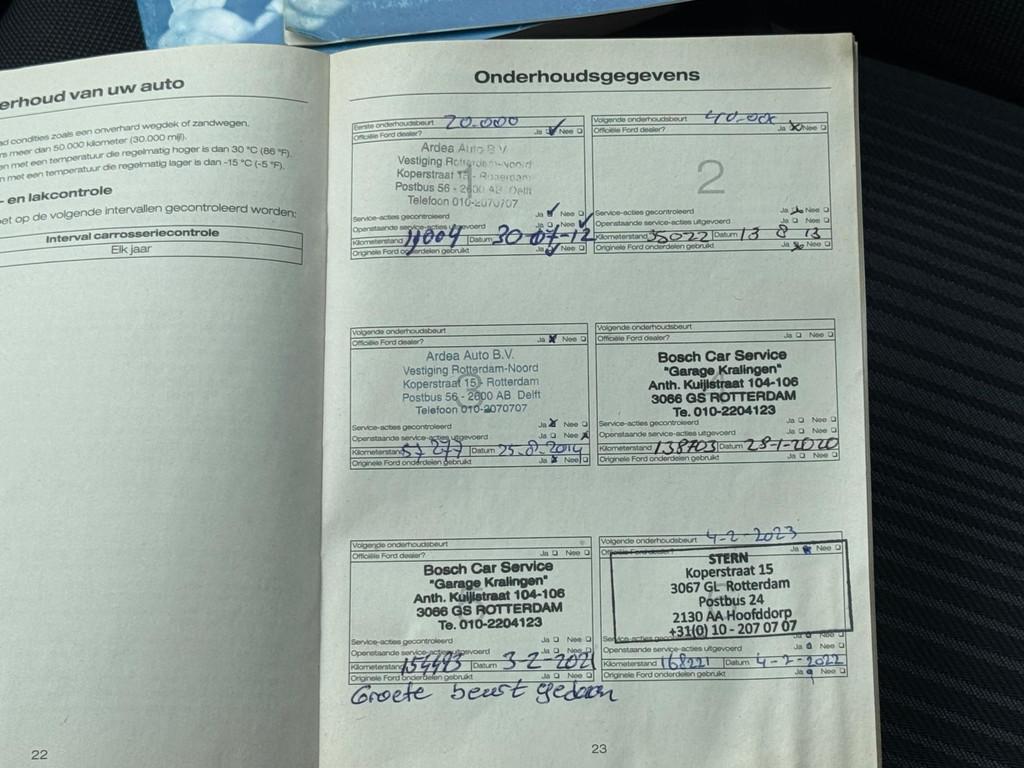 erhoud van uw auto
ad condities zoals een onverhard wegdek of zandwegen.
rs meer dan 50.000 kilometer (30.000 mijl).
en met een temperatuur die regelmatig hoger is dan 30 °C (86 °F).
en met een temperatuur die regelmatig lager is dan -15 °C (-5 °F).
- en lakcontrole
et op de volgende intervallen gecontroleerd worden:
Interval carrosseriecontrole
Elk jaar
22
Onderhoudsgegevens
Eerste onderhoudsbeurt 20.000
Officiële Ford dealer? Ja Nee
Ardea Auto B.V.
Vestiging Rotterdam-Noord
Koperstraat 15 - Rotterdam
Postbus 56 - 2600 AB Delft
Telefoon 010-2070707
Service-acties gecontroleerd Ja Nee
Openstaande service-acties uitgevoerd Ja Nee
Kilometerstand Datum 30-07-12
Originele Ford onderdelen gebruikt Ja Nee
Volgende onderhoudsbeurt 40.000
Officiële Ford dealer? Ja Nee
2
Service-acties gecontroleerd Ja Nee
Openstaande service-acties uitgevoerd Ja Nee
Kilometerstand 35022 Datum 13 8 13
Originele Ford onderdelen gebruikt Ja Nee
Volgende onderhoudsbeurt
Officiële Ford dealer? Ja Nee
Ardea Auto B.V.
Vestiging Rotterdam-Noord
Koperstraat 15 - Rotterdam
Postbus 56 - 2600 AB Delft
Telefoon 010-2070707
Service-acties gecontroleerd Ja Nee
Openstaande service-acties uitgevoerd Ja Nee
Kilometerstand 57277 Datum 25-8-2014
Originele Ford onderdelen gebruikt Ja Nee
Volgende onderhoudsbeurt
Officiële Ford dealer? Ja Nee
Bosch Car Service
"Garage Kralingen"
Anth. Kuijlstraat 104-106
3066 GS ROTTERDAM
Te. 010-2204123
Service-acties gecontroleerd Ja Nee
Openstaande service-acties uitgevoerd Ja Nee
Kilometerstand 138703 Datum 28-1-2020
Originele Ford onderdelen gebruikt Ja Nee
Volgende onderhoudsbeurt
Officiële Ford dealer? Ja Nee
Bosch Car Service
"Garage Kralingen"
Anth. Kuijlstraat 104-106
3066 GS ROTTERDAM
Te. 010-2204123
Service-acties gecontroleerd Ja Nee
Openstaande service-acties uitgevoerd Ja Nee
Kilometerstand 154493 Datum 3-2-2021
Originele Ford onderdelen gebruikt Ja Nee
Groete beurt gedaan
Volgende onderhoudsbeurt 4-2-2023
Officiële Ford dealer? Ja Nee
STERN
Koperstraat 15
3067 GL Rotterdam
Postbus 24
2130 AA Hoofddorp
+31(0) 10 - 207 07 07
Service-acties Ja Nee
Openstaande service-acties uitgevoerd Ja Nee
Kilometerstand 168221 Datum 4-2-2022
Originele Ford onderdelen gebruikt Ja Nee
23